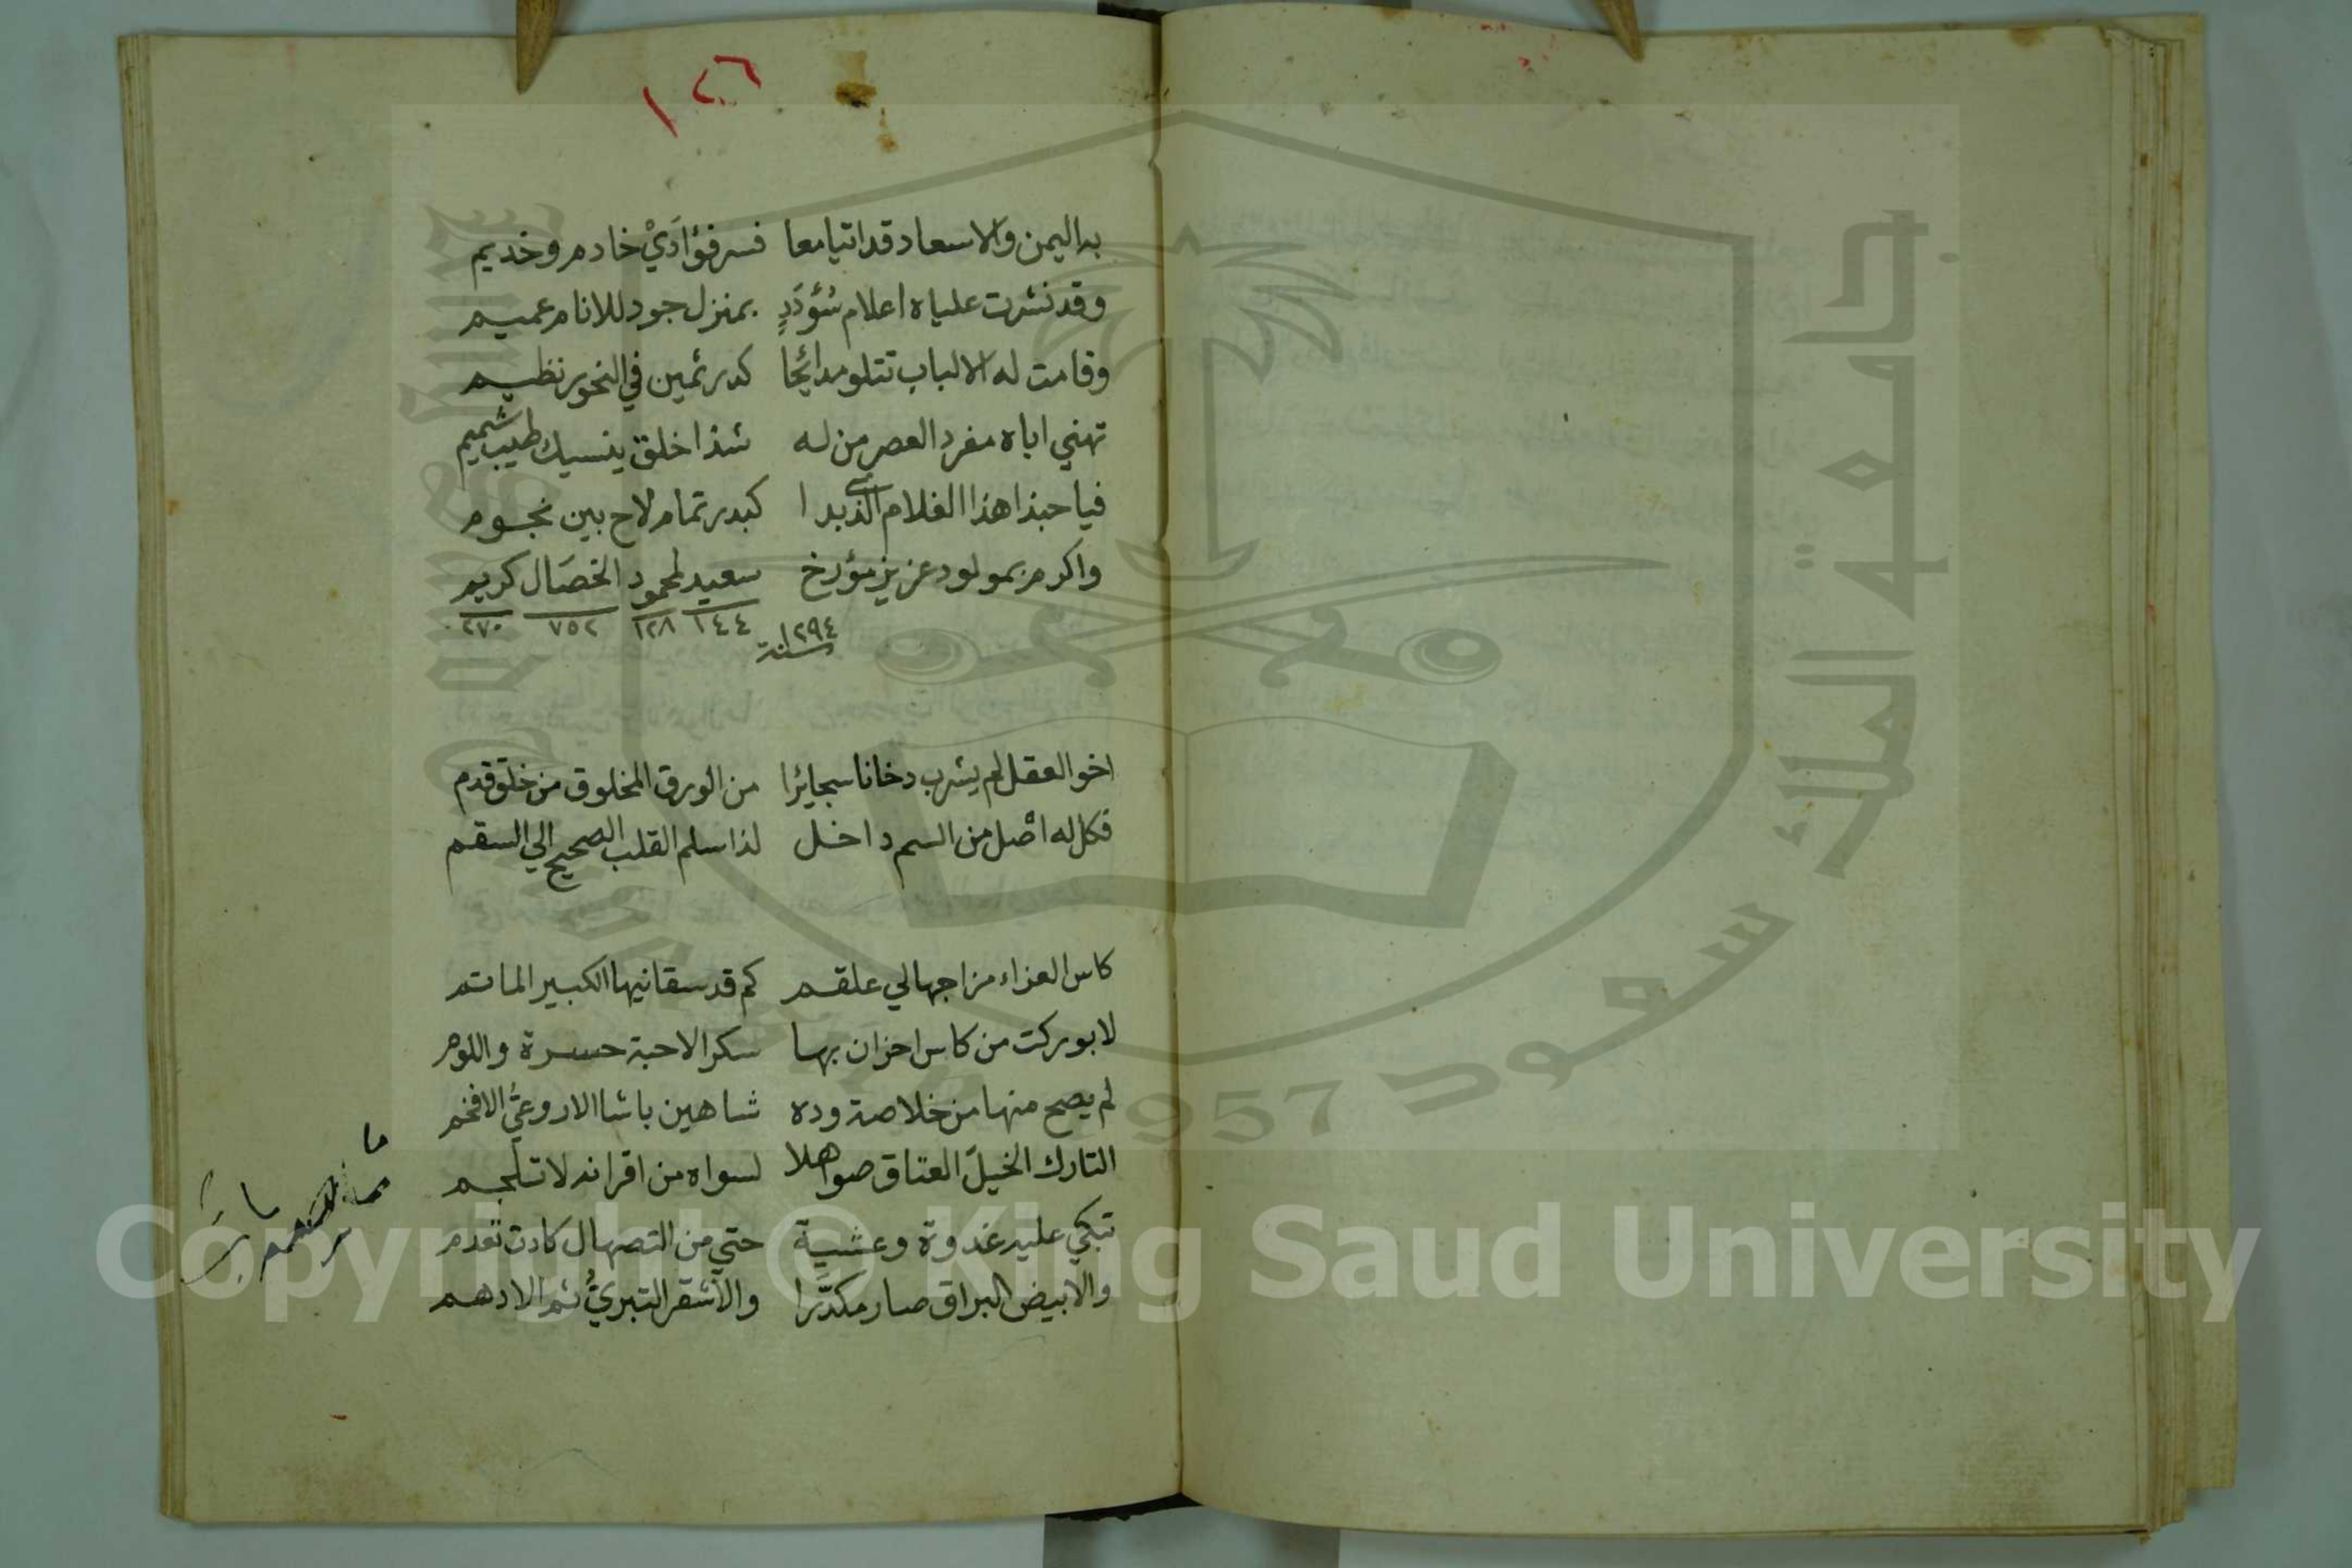 ١٢٦
به اليمن والاسعاد قد اتيا معا فسر فؤادَيْ خادم وخديم
وقد نشرت علياه اعلام سُؤدَدٍ بمنزل جود للانام عميم
وقامت له الالباب تتلو مدائحًا كدر ثمين في النحور نظيم
تهني اباه مفرد العصر من له شذا خلق ينسيك طيب شميم
فيا حبذا هذا الغلام الذي بدا كبدر تمام لاح بين نجوم
واكرم بمولود عزيز مؤرخ سعيد لمحمود الخصَال كريم
١٤٤ ١٢٨ ٧٥٢ ٢٧٠
سنة ١٢٩٤
اخو العقل لم يشرب دخانا سجايرًا من الورق المخلوق من خلق قدم
فكل له اصْل من السم داخل لذا سلم القلب الصحيح الي السقم
كاس العزاء مزاجها لي علقم كم قد سقانيها الكبير الماتم
لا بوركت من كاس احزان بها سكر الاحبة حسرة واللوم
لم يصح منها من خلاصة وده شاهين باشا الاروعيُّ الافخم
التارك الخيلَ العتاق صواهلا لسواه من اقرانه لا تلجم
تبكي عليه غدوة وعشية حتي من التصهال كادت تعدم
والابيض البراق صار مكدّرا والاشقر التبريُّ ثم الادهم
جامعة الملك سعود
1957
Copyright © King Saud University